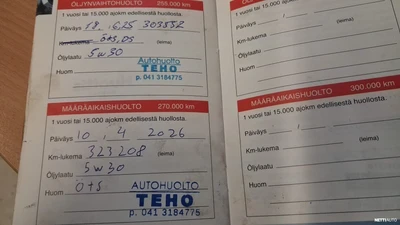 ÖLJYNVAIHTOHUOLTO 255.000 km
1 vuosi tai 15.000 ajokm edellisestä huollosta.
Päiväys 18. 6.25 303552
Km-lukema öts,os (leima)
Öljylaatu 5w30
Huom
Autohuolto
TEHO
p. 041 3184775
MÄÄRÄAIKAISHUOLTO 270.000 km
1 vuosi tai 15.000 ajokm edellisestä huollosta.
Päiväys 10 . 4 2026
Km-lukema 323208 (leima)
Öljylaatu 5w30
Huom öts
AUTOHUOLTO
TEHO
p. 041 3184775
1 vuosi tai 15.000 ajokm edellisestä huollosta.
Päiväys /
Km-lukema (leima)
Öljylaatu
Huom
MÄÄRÄAIKAISHUOLTO 300.000 km
1 vuosi tai 15.000 ajokm edellisestä huollosta.
Päiväys /
Km-lukema (leima)
Öljylaatu
Huom
NETTIAUTO